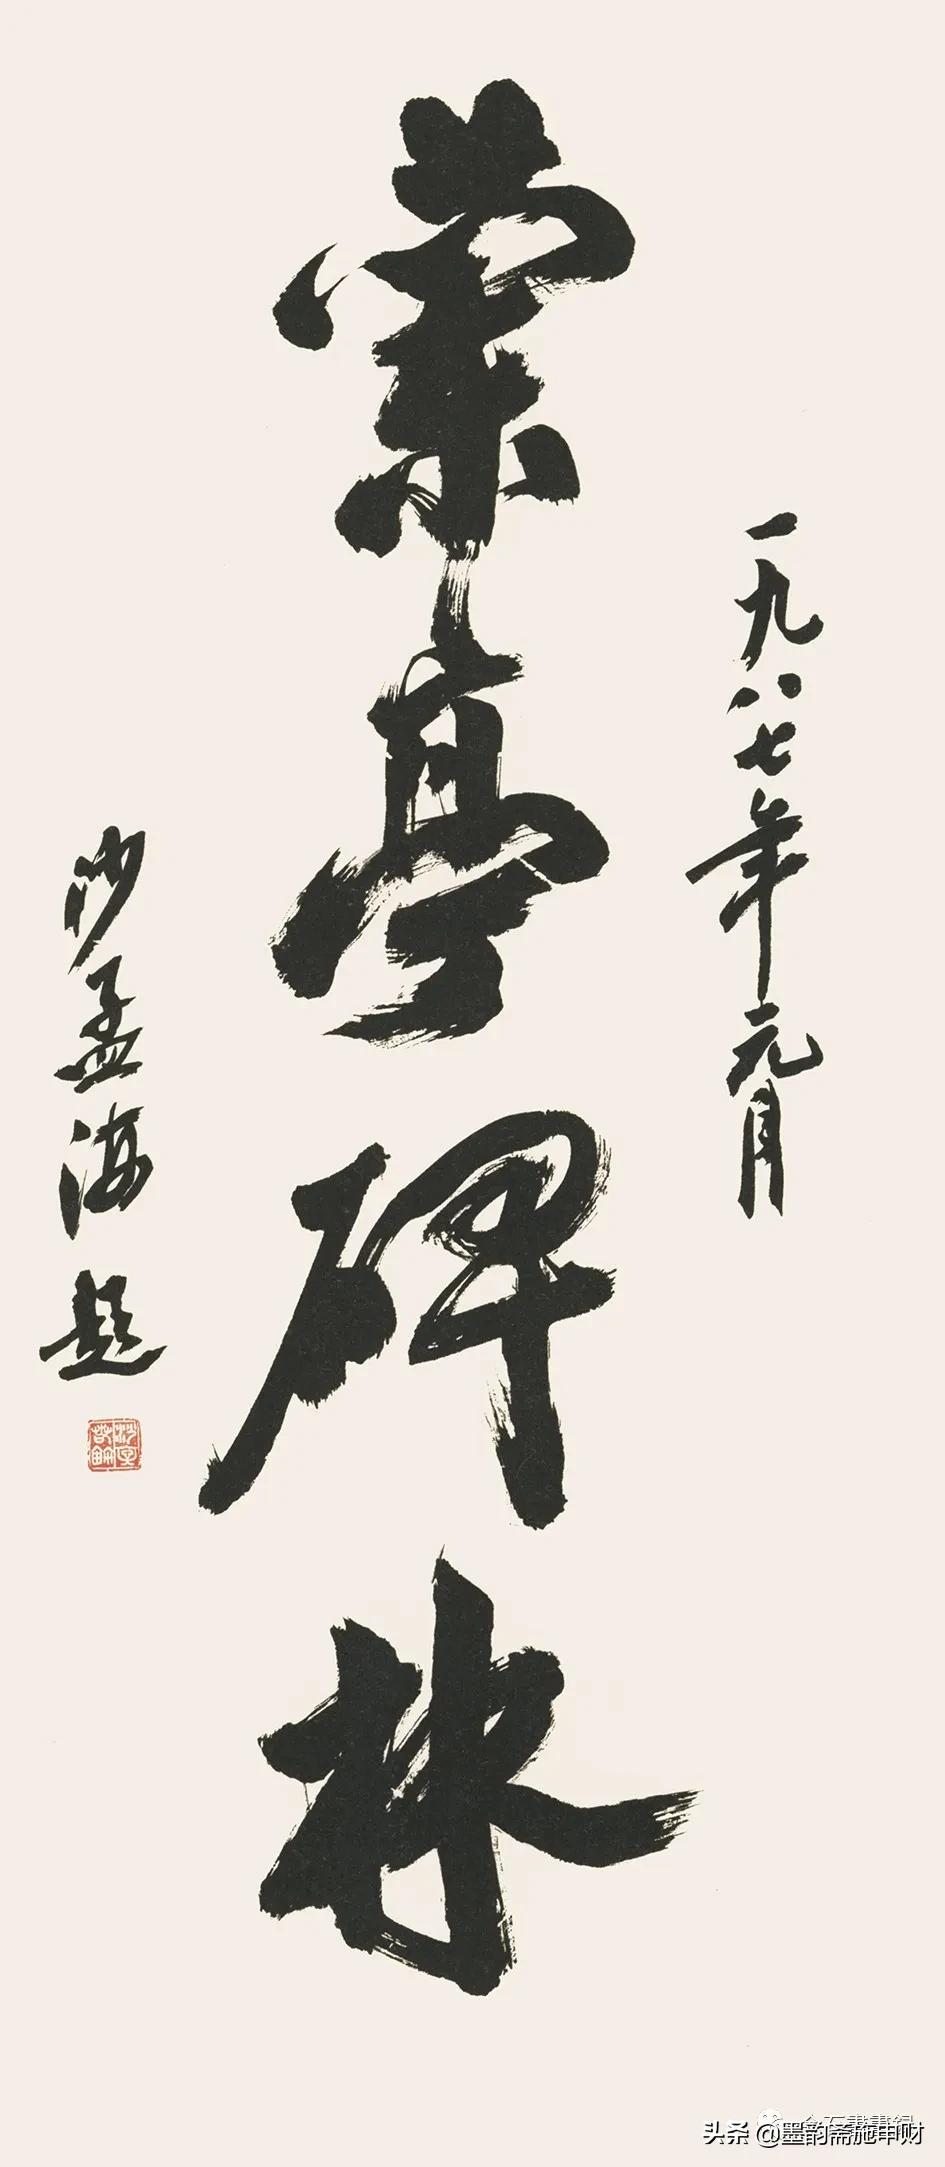 一九八七年元月
崇亭碑林
沙孟海题
头条 @墨韵斋施申财